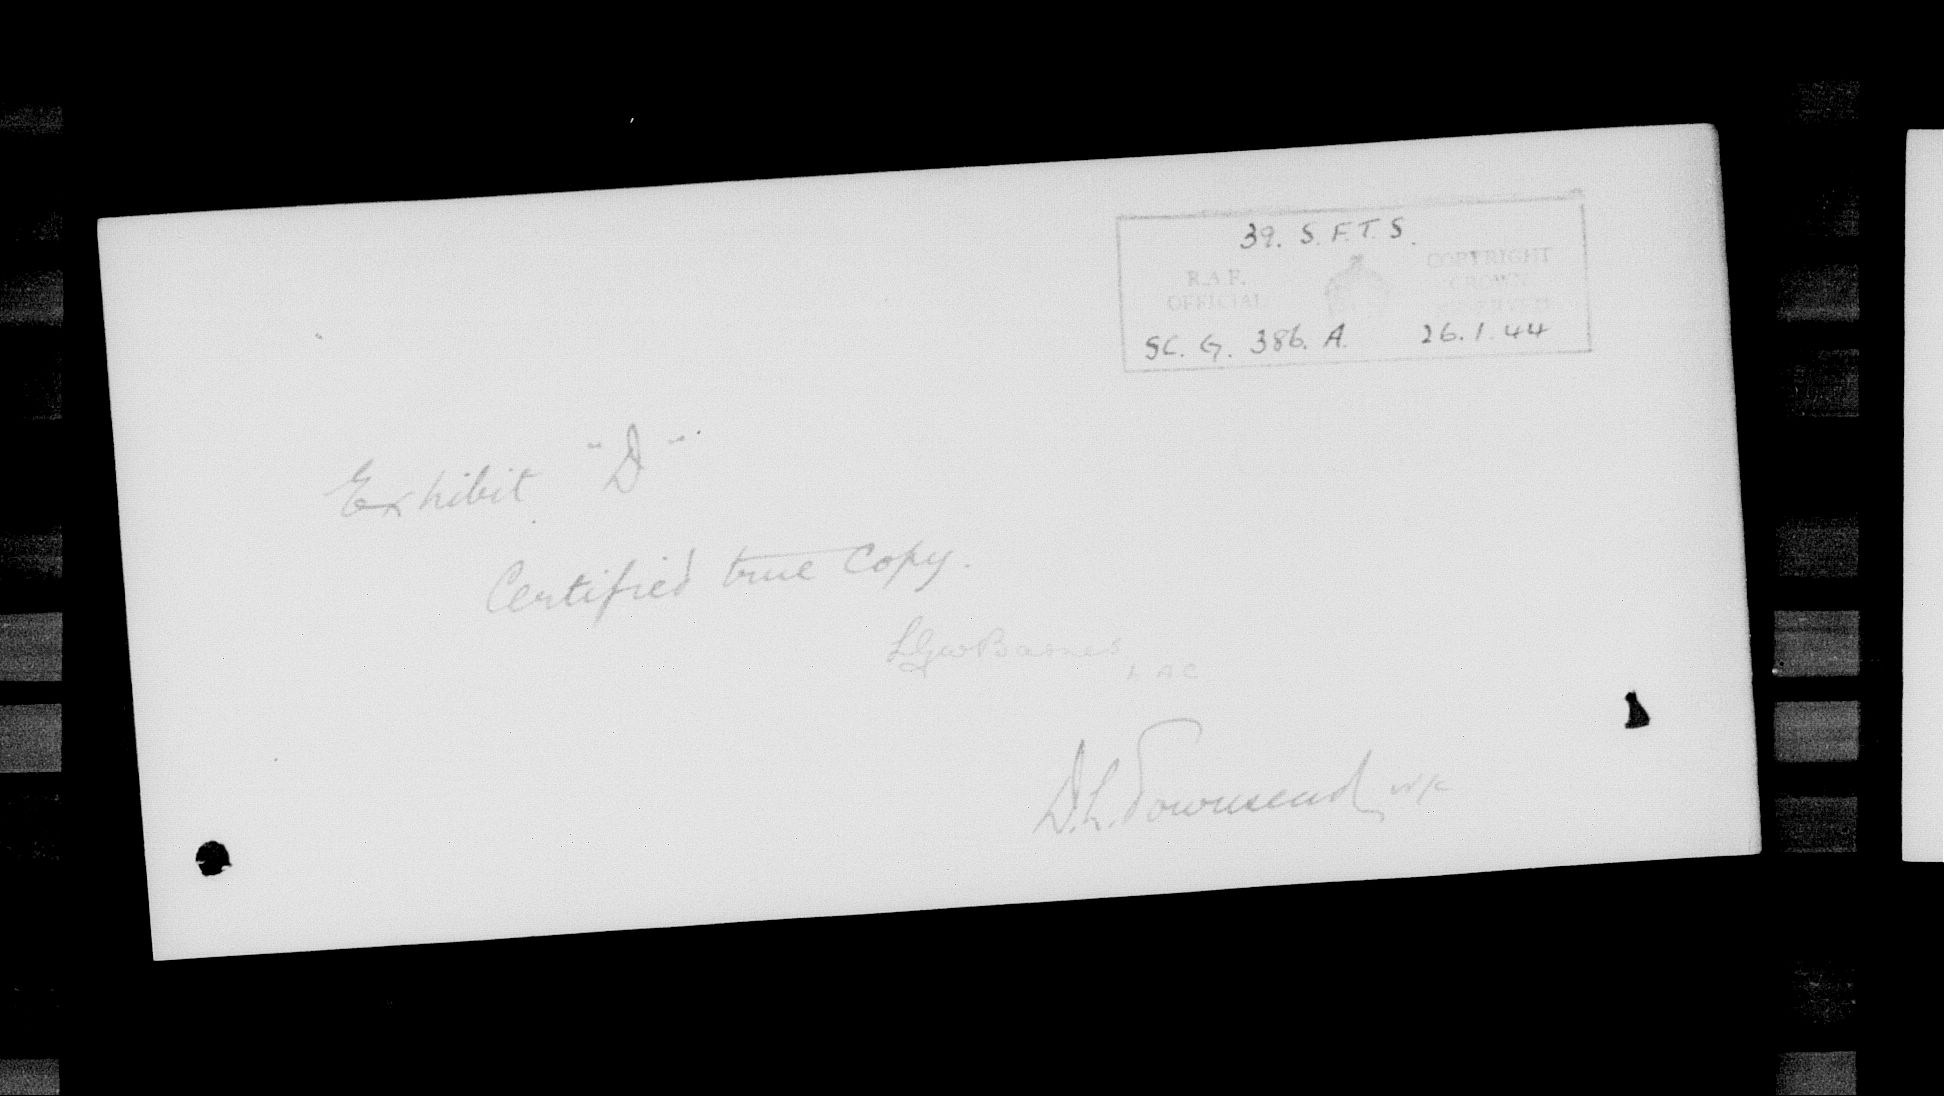 39. S. F. T. S.
R.A.F. COPYRIGHT
OFFICIAL CROWN
RESERVED
SC. G. 386. A. 26.1.44
Exhibit "D"
Certified true Copy.
LGWBarnes LAC
D.L. Townsend